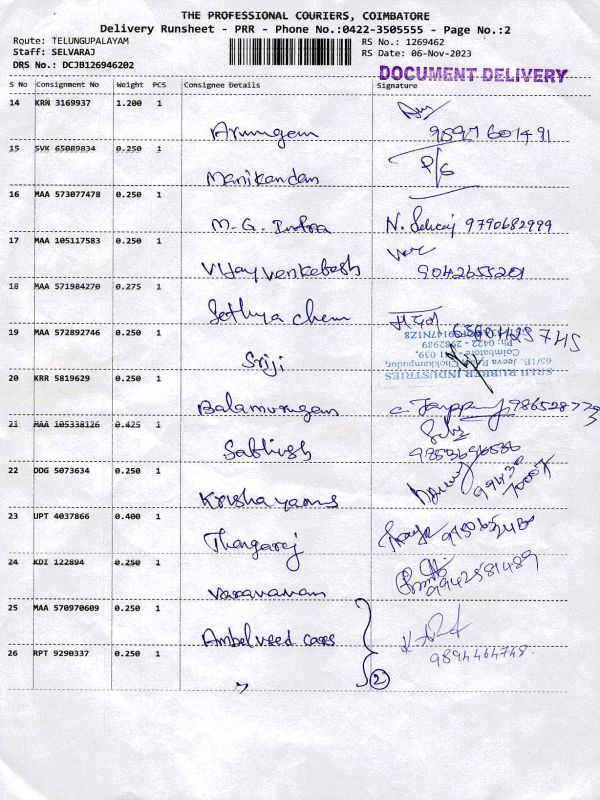 THE PROFESSIONAL COURIERS, COIMBATORE
Delivery Runsheet - PRR - Phone No.:0422-3505555 - Page No.:2
Route: TELUNGUPALAYAM RS No.: 1269462
Staff: SELVARAJ RS Date: 06-Nov-2023
DRS No.: DCJB126946202
DOCUMENT DELIVERY
S No Consignment No Weight PCS Consignee Details Signature
14 KRN 3169937 1.200 1
Arumugam
15 SVK 65089834 0.250 1
Manikandan P/S
16 MAA 573077478 0.250 1
M.G. Infra N. Selvaj 9790682999
17 MAA 105117583 0.250 1
Vijay Venkatesh 9042655201
18 MAA 571984270 0.275 1
Sethya Chem
19 MAA 572892746 0.250 1
Sriji
Ph: 0422 - 2982989
Coimbatore - 641 039,
65/1E, Jeeva Road, Chokkampudur,
SRIJI RUBBER INDUSTRIES
20 KRR 5819629 0.250 1
Balamurugan 986528773
21 MAA 105338126 0.425 1
Sathish 9853696586
22 DDG 5073634 0.250 1
Krishayams
23 UPT 4037866 0.400 1
Thangaraj
24 KDI 122894 0.250 1
Varavanan 9942581489
25 MAA 570970609 0.250 1
Ambelveed cases
26 RPT 9290337 0.250 1
9894464748
" 2